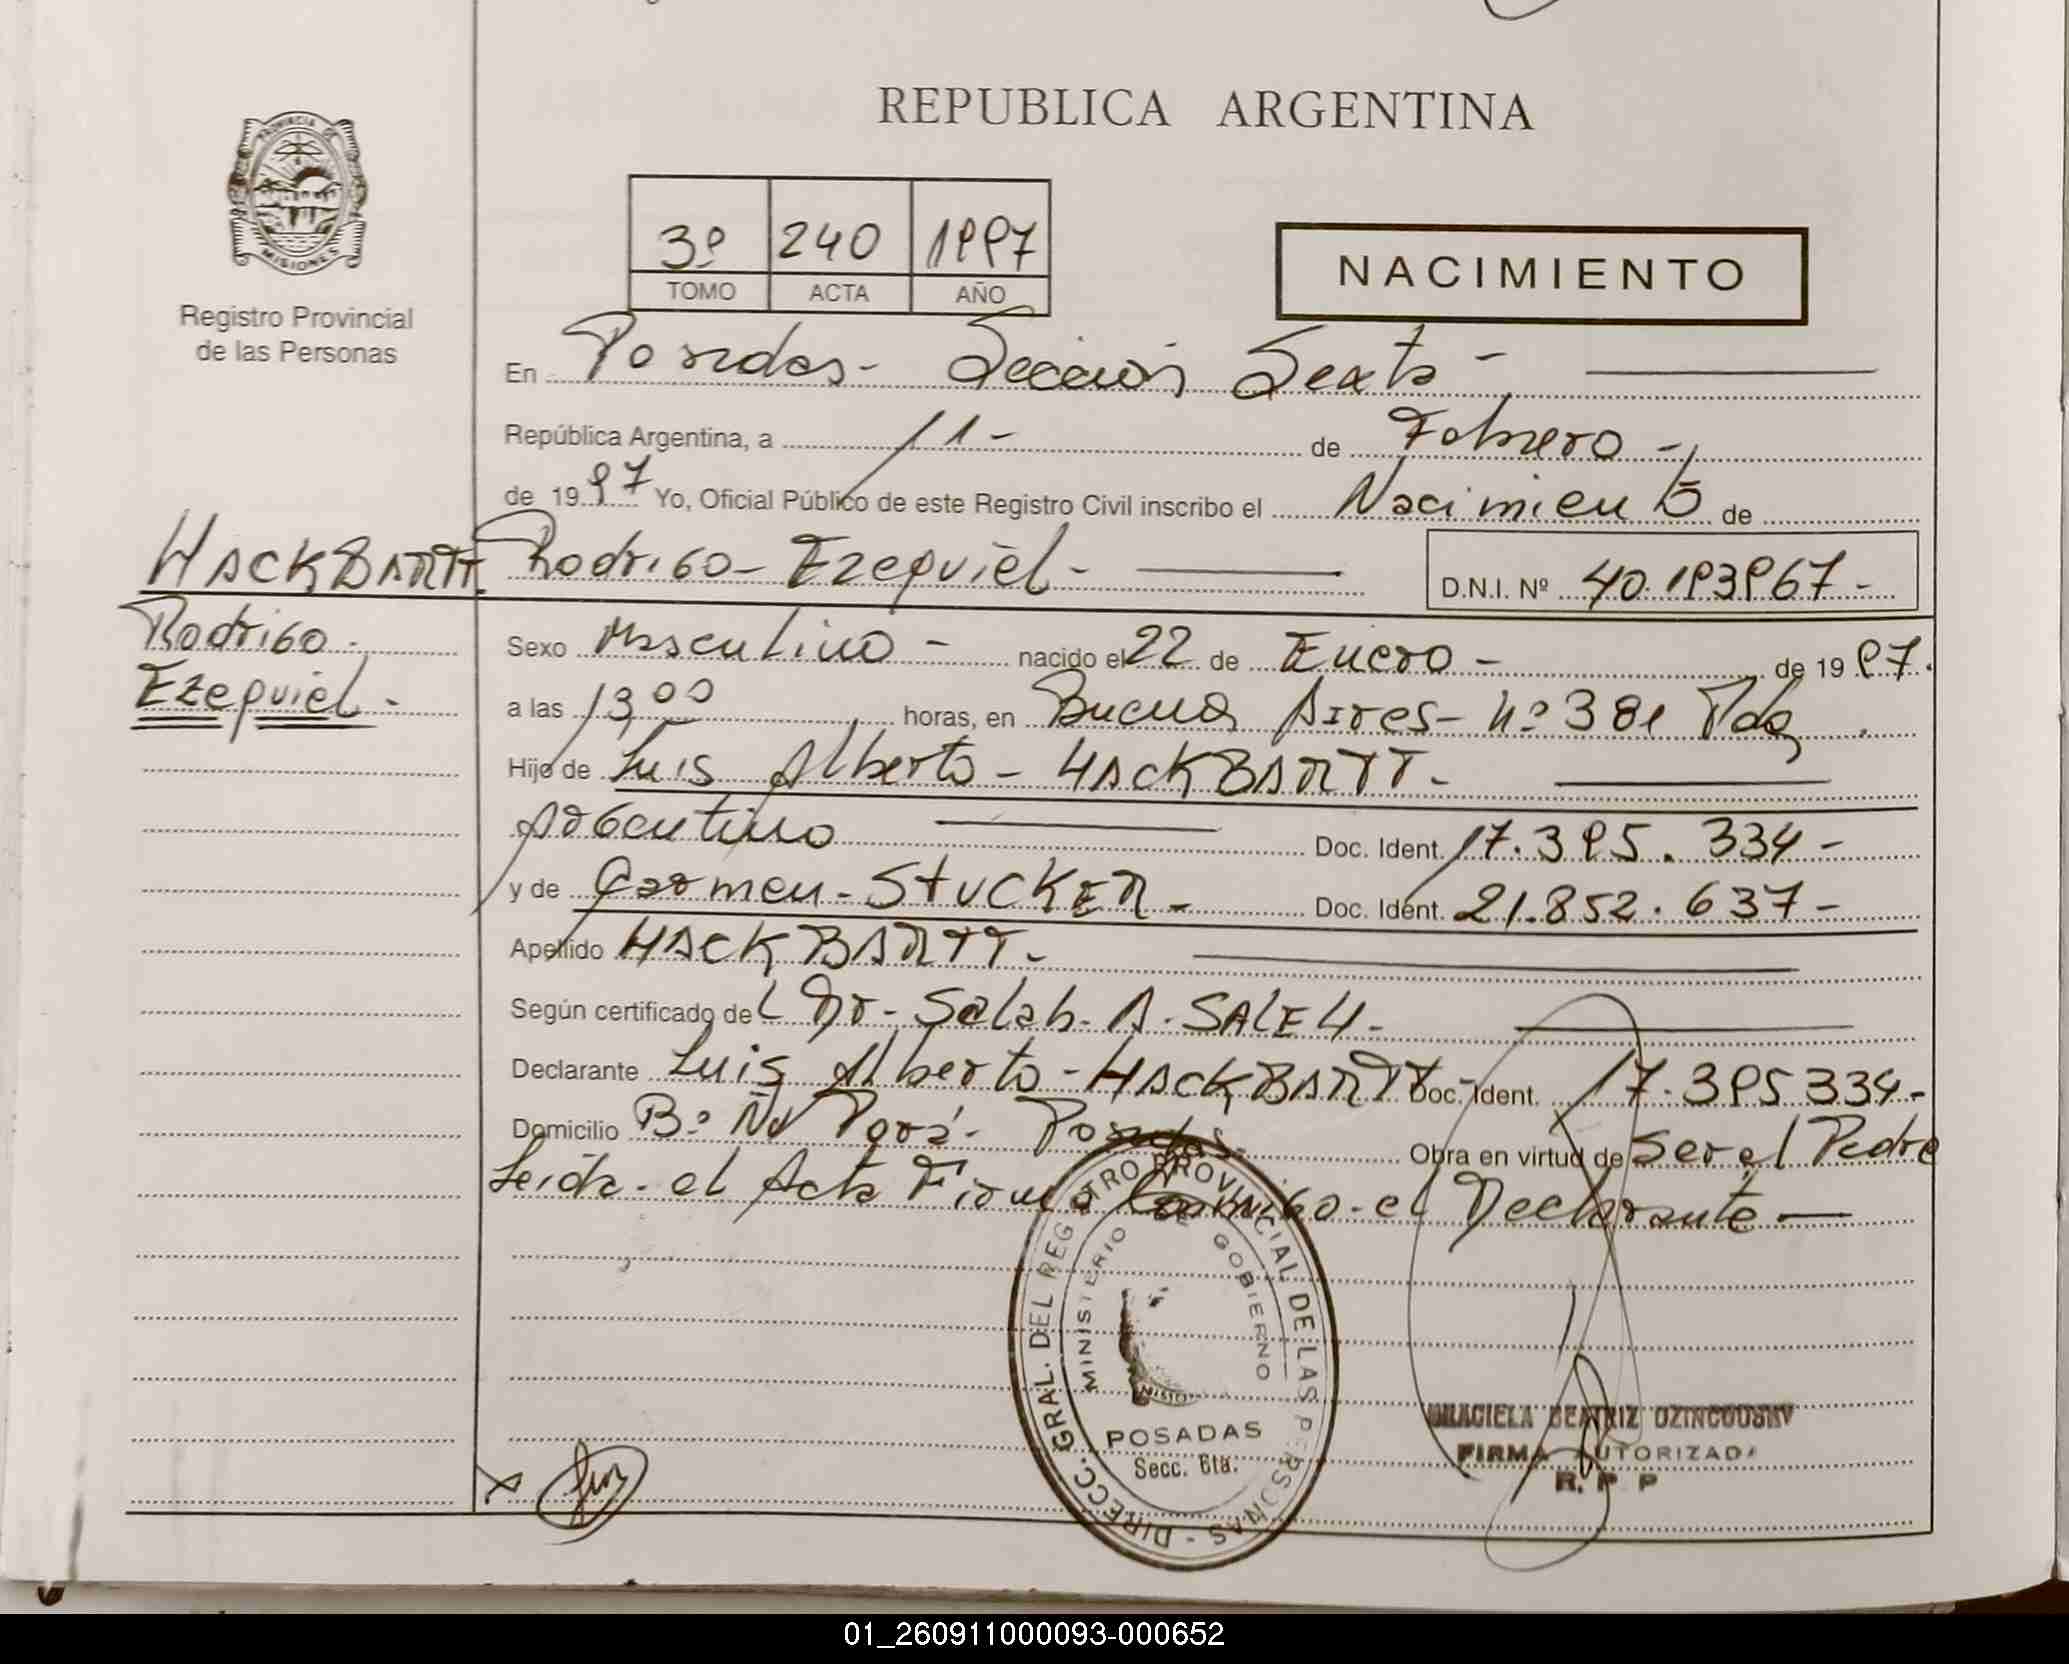 REPUBLICA ARGENTINA
PROVINCIA DE
MISIONES
Registro Provincial
de las Personas
3º 240 1997
TOMO ACTA AÑO
NACIMIENTO
En Posadas - Sección Sexta -
República Argentina, a 11 - de Febrero -
de 1997 Yo, Oficial Público de este Registro Civil inscribo el Nacimiento de
HACKBARTT Rodrigo - Ezequiel - D.N.I. Nº 40.193967 -
Rodrigo -
Ezequiel -
Sexo Masculino - nacido el 22 de Enero - de 1997.
a las 13,00 horas, en Buenos Aires - nº 381 Pdas
Hijo de Luis Alberto - HACKBARTT -
Argentino Doc. Ident. 17.395.334 -
y de Carmen - STUCKER - Doc. Ident. 21.852.637 -
Apellido HACKBARTT -
Según certificado del Dr - Salah - A. SALEH -
Declarante Luis Alberto - HACKBARTT Doc. Ident. 17.395334 -
Domicilio Bº Ñú Porá - Posadas - Obra en virtud de Ser el Padre
Leída - el Acta Firma Conmigo - el Declarante -
DIRECC. GRAL. DEL REGISTRO PROVINCIAL DE LAS PERSONAS -
MINISTERIO DE GOBIERNO
POSADAS
Secc. 6ta.
GRACIELA BEATRIZ
FIRMA AUTORIZADA
R. P. P
X
01_260911000093-000652